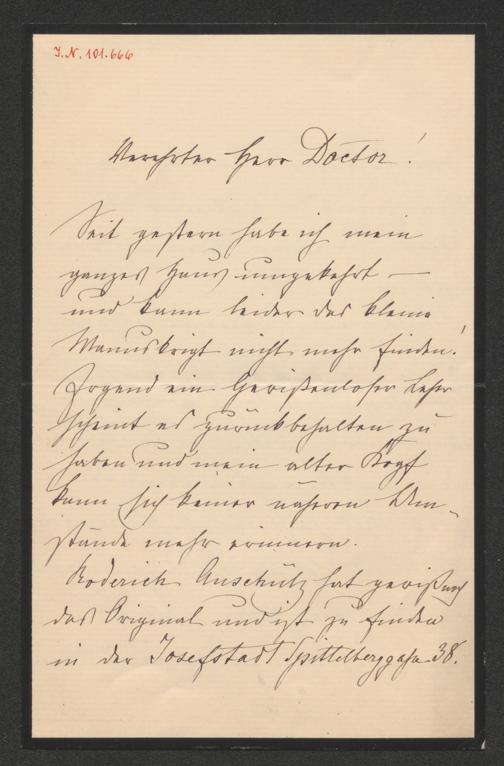 J.N. 101.666
Verehrter Herr Doctor!
Seit gestern habe ich mein
ganzes Haus umgekehrt —
und kann leider das kleine
Manuskript nicht mehr finden!
Irgend ein Gewißenloser Leser
scheint es zurückbehalten zu
haben und mein alter Kopf
kann sich keiner näheren Um-
stände mehr erinnern.
Roderich Anschütz hat gewiß noch
das Original und ist zu finden
in der Josefstadt Spittelberggasse 38.